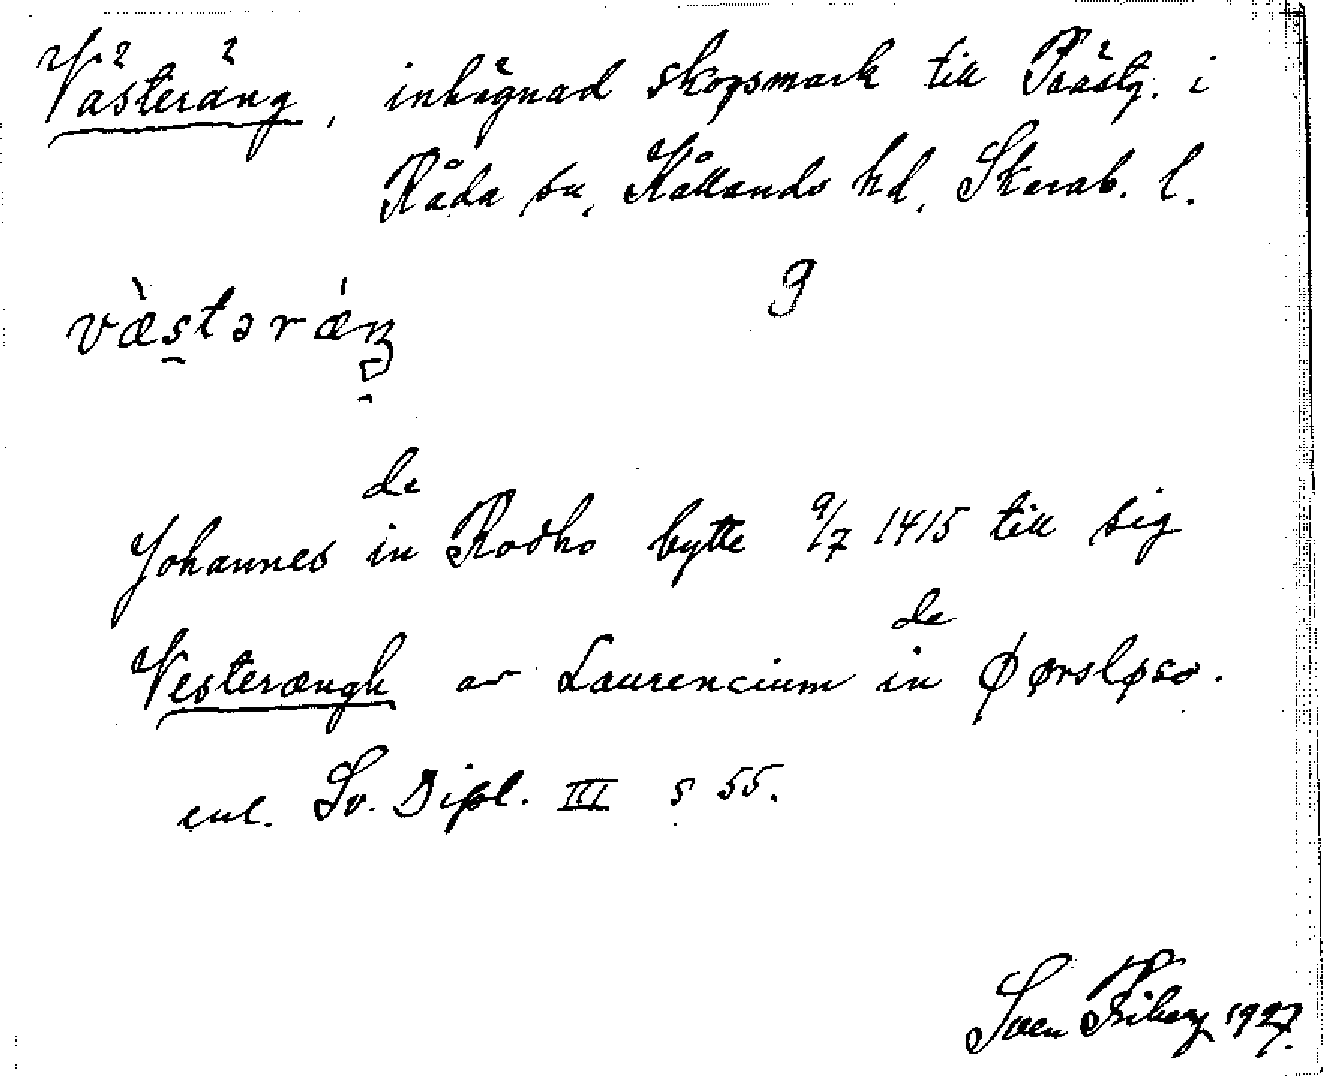 Västeräng, inhägnad skogsmark till Prästg. i
Råda sn, Kållands hd, Skarab. l.
9
væ̀stərǽŋ
de
Johannes in Rodho bytte 9/7 1415 till sig
de
Vesterængh av Laurencium in Ørsløso.
enl. Sv. Dipl. III s 55.
Sven Friberg 1927.